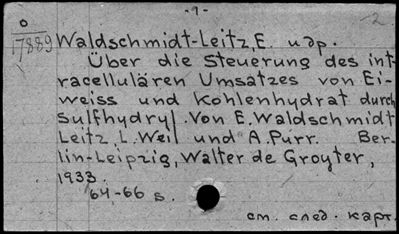 - 9 -
2
O
17889
Waldschmidt-Leitz, E. и др.
Über die Steuerung des int-
racellulären Umsatzes von Ei-
weiss und Kohlenhydrat durch
Sulfhydryl. Von E. Waldschmidt
Leitz, L. Weil und A. Purr. Ber-
lin-Leipzig, Walter de Groyter,
1933.
64-66 s.
см. след. карт.